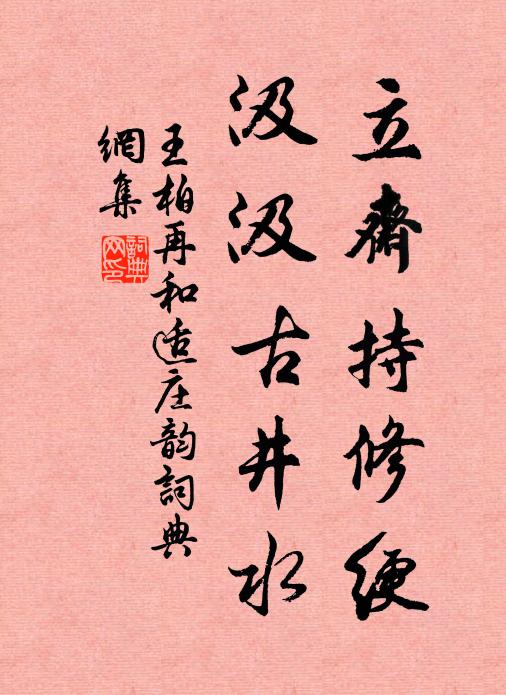 立齋持修綆
汲汲古井水
王柏再和适庄韵詞典
網集
詞典
网印